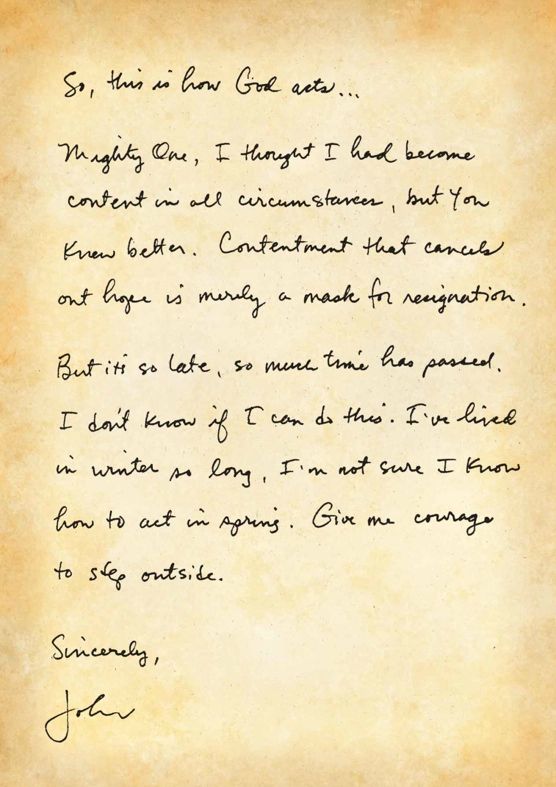 So, this is how God acts...
Mighty One, I thought I had become
content in all circumstances, but You
knew better. Contentment that cancels
out hope is merely a mask for resignation.
But it's so late, so much time has passed.
I don't know if I can do this. I've lived
in winter so long, I'm not sure I know
how to act in spring. Give me courage
to step outside.
Sincerely,
John